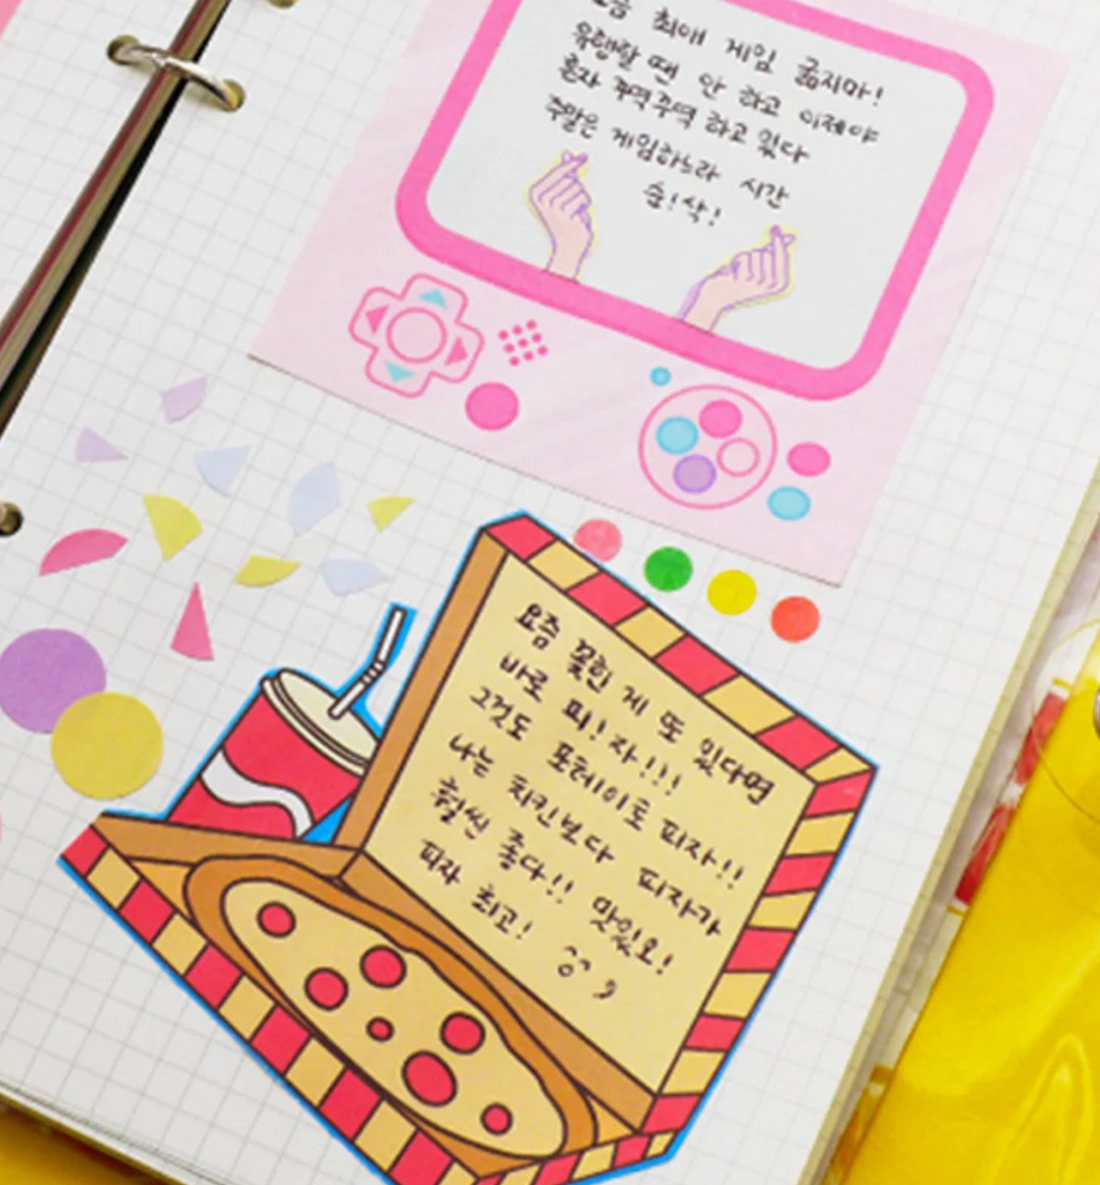 요즘 최애 게임 굶지마!
유행할 땐 안 하고 이제야
혼자 주역주역 하고 있다
주말은 게임하느라 시간
순!삭!
요즘 꽂힌 게 또 있다면
바로 피!자!!!
그것도 포테이토 피자!!
나는 치킨보다 피자가
훨씬 좋다!! 맛있오!
피자 최고!